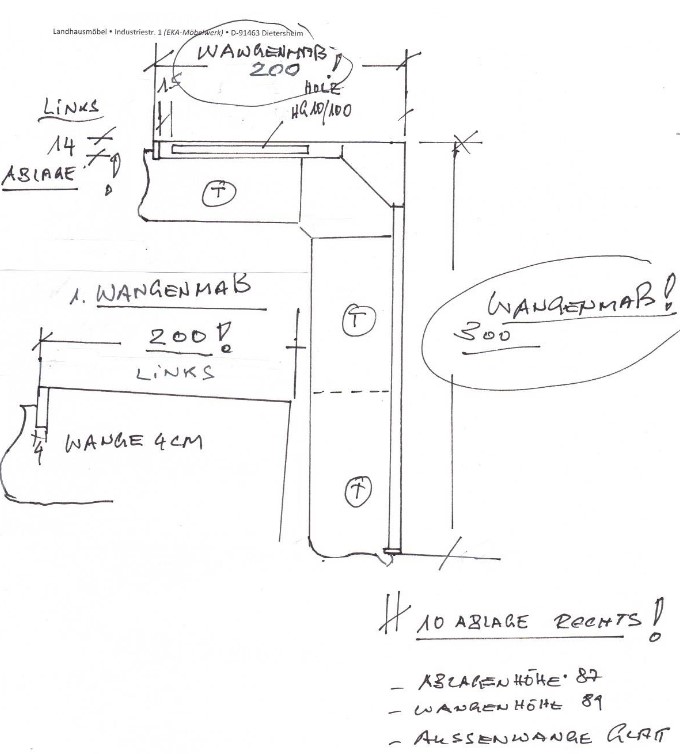 Landhausmöbel • Industriestr. 1 (EKA-Möbelwerk) • D-91463 Dietersheim
WANGENMAß!
200
15
HOLZ
HG 10/100
LINKS
14
ABLAGE !
T
1. WANGENMAß
200!
LINKS
T
WANGENMAß!
300
4
WANGE 4CM
T
# 10 ABLAGE RECHTS!
- ABLAGENHÖHE 87
- WANGENHÖHE 89
- AUSSENWANGE GLATT